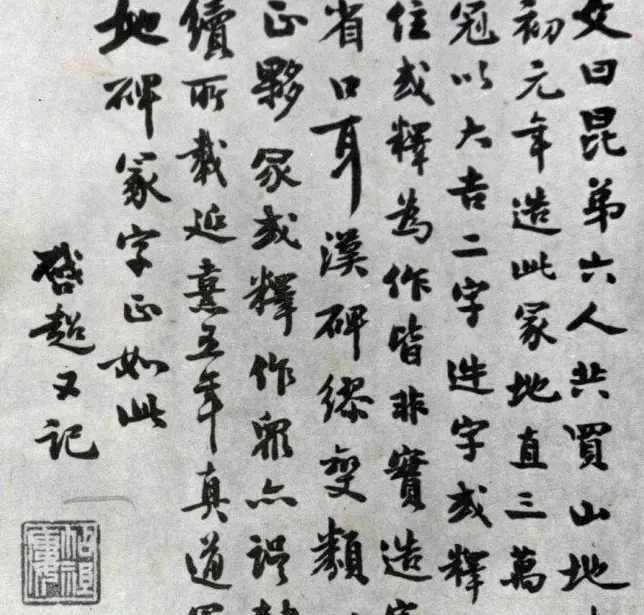 文曰昆弟六人共買山地
初元年造此冢地直三萬
冠以大吉二字造字或釋
住或釋為作皆非實造字
省口耳漢碑繆變類
正夥冢或釋作罪亦誤
續所載延熹五年真道冢
地碑冢字正如此
啓超又記